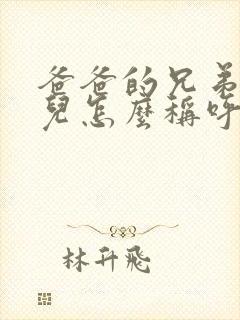 爸爸的兄弟
兒怎麼稱呼
林升飛